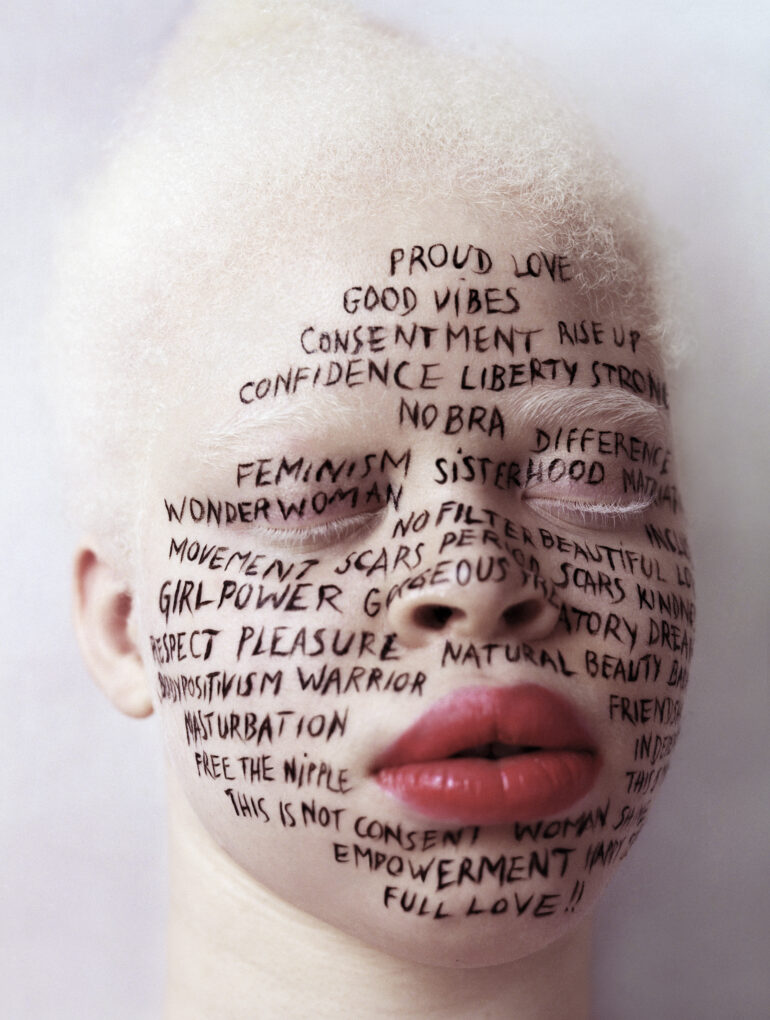 PROUD LOVE
GOOD VIBES
CONSENTMENT RISE UP
CONFIDENCE LIBERTY STRONG
NO BRA
DIFFERENCE
FEMINISM SISTERHOOD
WONDERWOMAN
NO FILTER BEAUTIFUL
MOVEMENT SCARS PERIOD SCARS
GIRLPOWER GORGEOUS
RESPECT PLEASURE NATURAL BEAUTY
BODYPOSITIVISM WARRIOR
MASTURBATION
FREE THE NIPPLE
THIS IS NOT CONSENT WOMAN
EMPOWERMENT
FULL LOVE!!